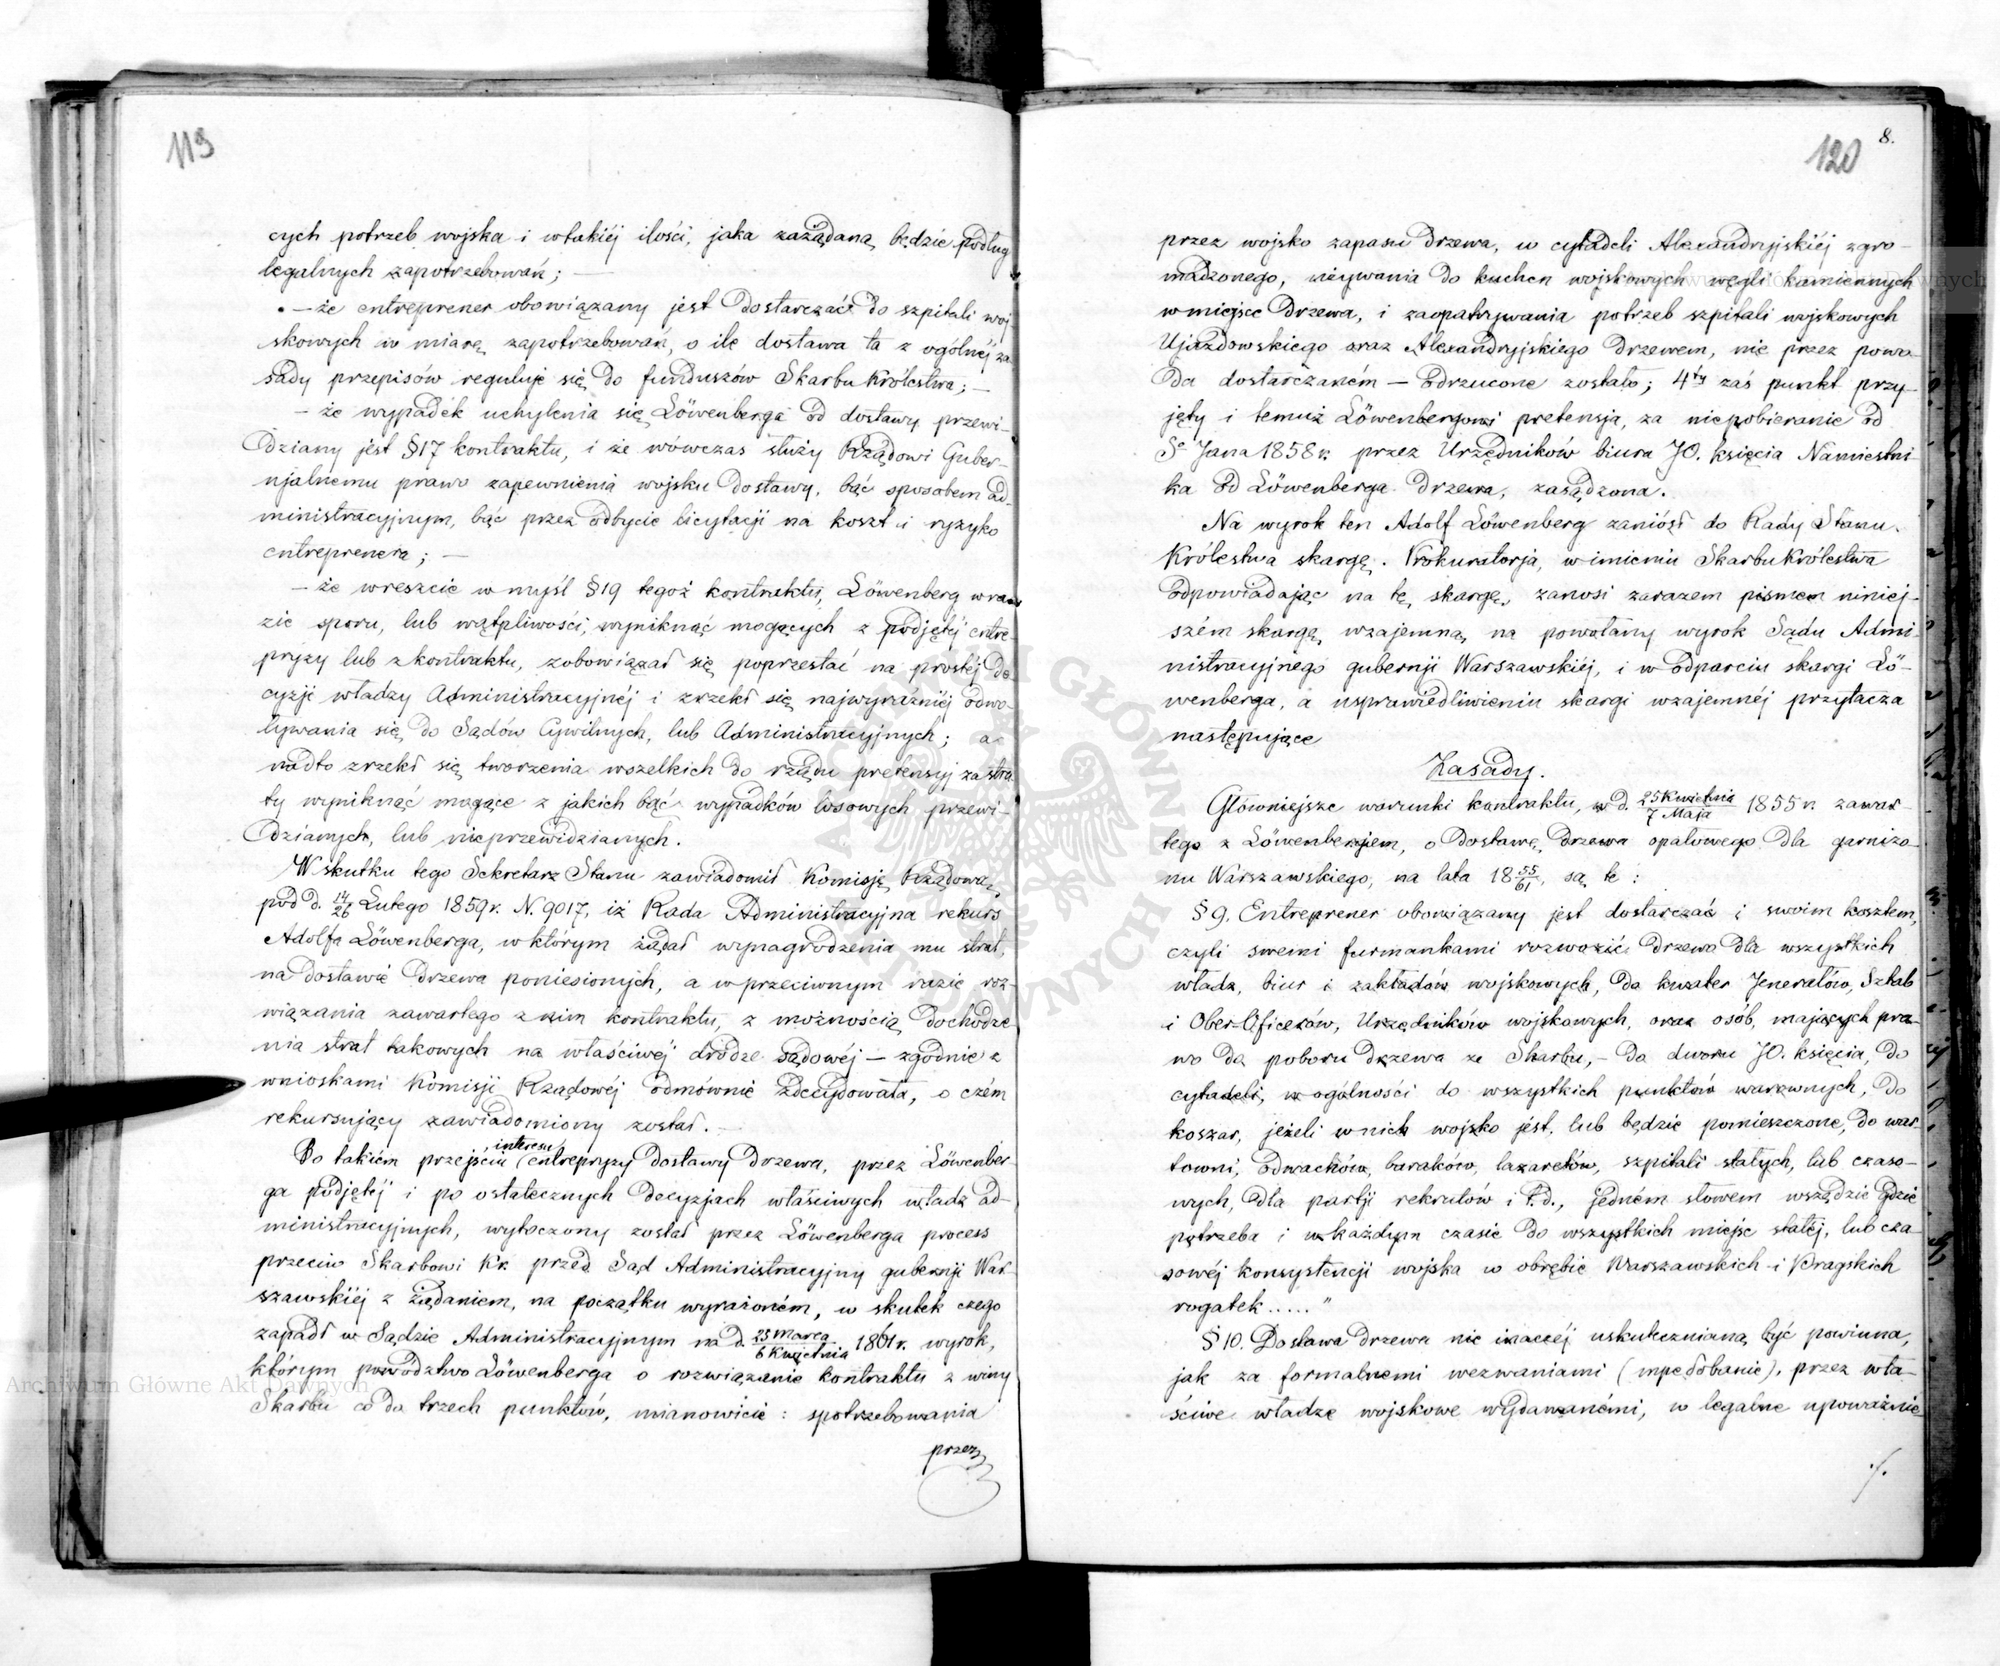 119
cych potrzeb wojska i wtakiéj ilości, jaka zażądaną będzie podług
legalnych zapotrzebowań; —
— że entreprener obowiązany jest dostarczać do szpitali woj
skowych w miarę zapotrzebowań, o ile dostawa ta z ogólnéj za
sady przepisów reguluje się do funduszów Skarbu Królestwa; —
— że wypadek uchylenia się Löwenberga od dostawy przewi-
dziany jest §17 kontraktu, i że wówczas służy Rządowi Guber-
njalnemu prawo zapewnienia wojsku dostawy, bąć sposobem ad-
ministracyjnym, bąć przez odbycie licytacji na koszt i ryzyko
entreprenera; —
— że wreszcie w myśl §19 tegoż kontraktu, Löwenberg w ra
zie sporu, lub wątpliwości, wyniknąć mogących z podjętéj entre-
pryzy lub z kontraktu, zobowiązał się poprzestać na prostéj de-
cyzji władzy Administracyjnéj i zrzekł się najwyraźniéj odwo-
ływania się do Sądów Cywilnych, lub Administracyjnych; a
nadto zrzekł się tworzenia wszelkich do rządu pretensyj za stra
ty wyniknąć mogące z jakich bąć wypadków losowych przewi-
dzianych, lub nieprzewidzianych.
Wskutku tego Sekretarz Stanu zawiadomił Komisję Rządową,
pod d. 14/26 Lutego 1859 r. N. 9017, iż Rada Administracyjna rekurs
Adolfa Löwenberga, w którym żądał wynagrodzenia mu strat,
na dostawie drzewa poniesionych, a w przeciwnym razie roz-
wiązania zawartego z nim kontraktu, z możnością dochodze
nia strat takowych na właściwéj drodze sądowéj — zgodnie z
wnioskami Komisji Rządowéj odmównie zdecydowała, o czém
rekursujący zawiadomiony został. —
Po takiém przejściu interesu entrepryzy dostawy drzewa, przez Löwenber-
ga podjętéj i po ostatecznych decyzjach właściwych władz ad-
ministracyjnych, wytoczony został przez Löwenberga process
przeciw Skarbowi Kr. przed Sąd Administracyjny gubernji War-
szawskiéj z żądaniem, na początku wyrażoném, w skutek czego
zapadł w Sądzie Administracyjnym na d. 25 Marca/6 Kwietnia 1861 r. wyrok,
którym powództwo Löwenberga o rozwiązanie kontraktu z winy
Skarbu co do trzech punktów, mianowicie: spotrzebowania
przez
120
8.
przez wojsko zapasu drzewa, w cytadeli Alexandryjskiéj zgro-
madzonego, używania do kuchen wojskowych węgli kamiennych
w miejsce drzewa, i zaopatrywania potrzeb szpitali wojskowych
Ujazdowskiego oraz Alexandryjskiego drzewem, nie przez powo-
da dostarczaném — odrzucone zostało; 4ty zaś punkt przy-
jęty i temuż Löwenbergowi pretensja, za niepobieranie od
Sgo Jana 1858 r. przez Urzędników biura JO. księcia Namiestni-
ka od Löwenberga drzewa, zasądzona.
Na wyrok ten Adolf Löwenberg zaniósł do Rady Stanu
Królestwa skargę. Prokuratorja, w imieniu Skarbu Królestwa
odpowiadając na tę skargę, zanosi zarazem pismem niniej-
szém skargę wzajemną na powołany wyrok Sądu Admi-
nistracyjnego gubernji Warszawskiéj, i w odparciu skargi Lö-
wenberga, a usprawiedliwieniu skargi wzajemnéj przytacza
następujące
Zasady.
Główniejsze warunki kontraktu, w d. 25 Kwietnia/7 Maja 1855 r. zawar-
tego z Löwenbergiem, o dostawę drzewa opałowego dla garnizo-
nu Warszawskiego, na lata 18 55/61, są te:
§ 9. Entreprener obowiązany jest dostarczać i swoim kosztem,
czyli swemi furmankami rozwozić drzewo dla wszystkich
władz, biur i zakładów wojskowych, do kwater Jenerałów, Sztab
i Ober-Oficerów, Urzędników wojskowych, oraz osób, mających pra-
wo do poboru drzewa ze Skarbu, — do dworu JO. księcia, do
cytadeli, w ogólności do wszystkich punktów warownych, do
koszar, jeżeli w nich wojsko jest, lub będzie pomieszczone, do war
towni, odwachów, baraków, lazaretów, szpitali stałych, lub czaso-
wych, dla partji rekrutów i t. d., jedném słowem wszędzie gdzie
potrzeba i w każdym czasie do wszystkich miejsc stałéj, lub cza
sowéj konsystencji wojska w obrębie Warszawskich i Pragskich
rogatek....."
§ 10. Dostawa drzewa nie inaczéj uskutecznianą być powinna,
jak za formalnemi wezwaniami (mpedobanie), przez wła-
ściwe władze wojskowe wydawanémi, w legalne upoważnie
./.
Archiwum Główne Akt Dawnych